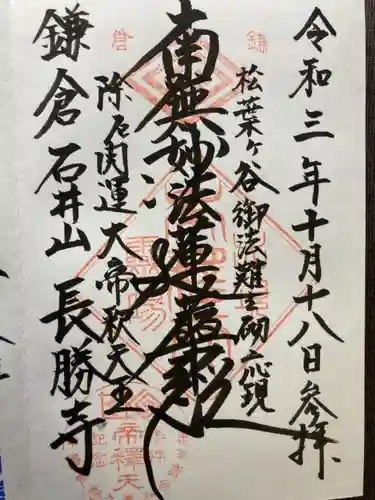 令和三年十月十八日参拝
松葉ヶ谷御法難之砌応現
南無妙法蓮華経
除厄開運大帝釈天王
鎌倉石井山長勝寺
鎌
倉
帝釋天